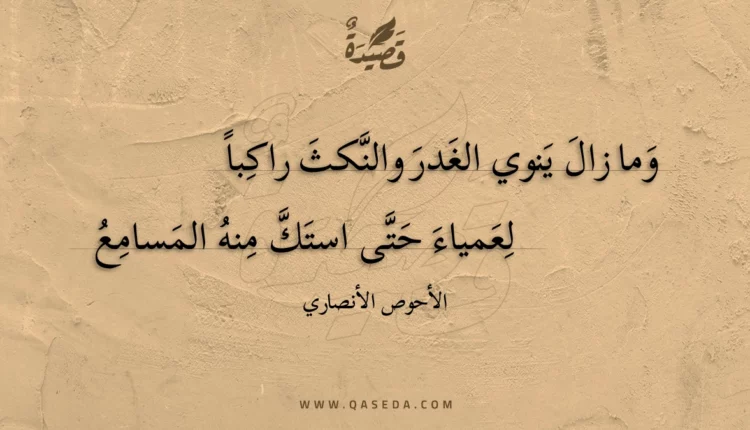 قَصِيْدَةٌ
وَما زالَ يَنوي الغَدرَ والنَّكثَ راكِباً
لِعَمياءَ حَتَّى استَكَّ مِنهُ المَسامِعُ
الأحوص الأنصاري
WWW.QASEDA.COM